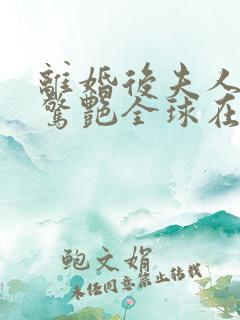 離婚後夫人
驚艷全球在
鲍文娟
未经同意禁止转载